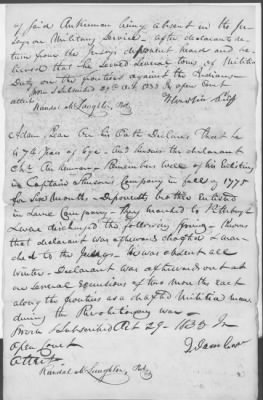 of said Ankerman being absent in the
Military Service - after declarants re-
turn from the Jerseys deponent heard and be-
lieved that he served several tours of Militia
Duty on the frontiers against the Indians
Sworn & Subscribed 29th Oct 1833 In open Court
attest
Randal McLaughlin, Pr
Adam Bear On his Oath Declares That he
is 74 years of age - And knows the declarant
Ankerman - Remembers well of his enlisting
in Captain Company in fall of 1775
for Six Months - Deponents brother enlisted
in same Company - they marched to
& was discharged the following Spring - knows
that declarant was afterwards drafted & mar-
ched to the Jerseys - he was absent all
Winter - Declarant was afterwards out at
on several Excursions of two months each
along the frontiers as a drafted Militia man
during the Revolutionary war -
Sworn & Subscribed Oct 29 - 1833 In
Open Court
Attest
Randal McLaughlin, Pr